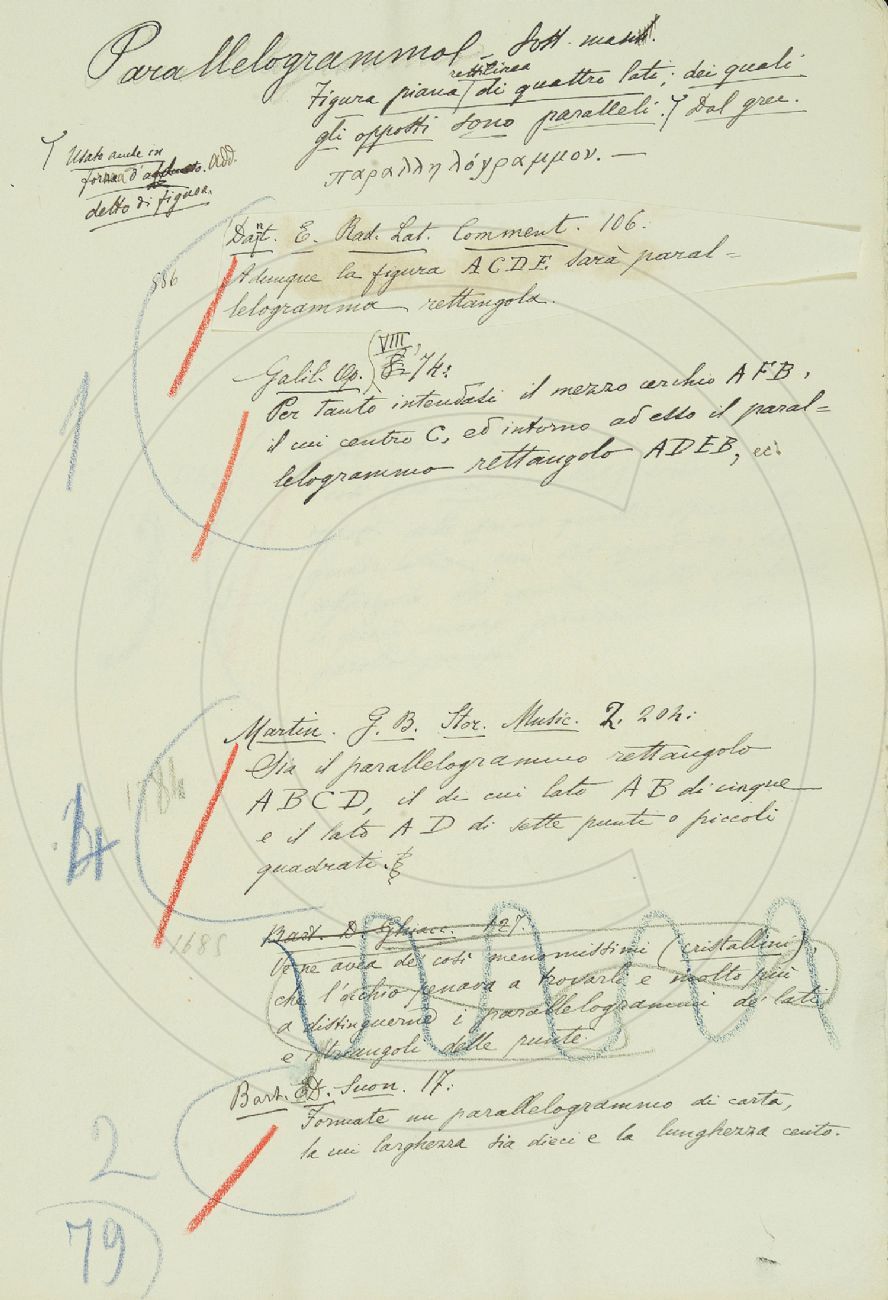 Parallelogrammo. Sost. masc.
rettilinea
Figura piana di quattro lati, dei quali
gli opposti sono paralleli. Dal grec.
παραλληλόγραμμον. —
Usato anche in
forza d' add.
detto di figura.
Dant. E. Rad. Lat. Comment. 106:
586
Adunque la figura ACDE sarà paral=
lelogramma rettangola.
VIII,
Galil. Op. 74:
1
Per tanto intendasi il mezzo cerchio AFB,
il cui centro C, ed intorno ad esso il paral=
lelogrammo rettangolo ADEB, ec.
Martin. G. B. Stor. Music. 2. 204:
Sia il parallelogrammo rettangolo
ABCD, il di cui lato AB di cinque
4
e il lato AD di sette punti o piccoli
quadrati.
Bart. D. Ghiacc. 127.
1685
Ve ne avea de' così menomissimi (cristallini),
che l'occhio penava a trovarli e molto più
a distinguerne i parallelogrammi de' lati
e i triangoli delle punte.
Bart. D. Suon. 17:
Formate un parallelogrammo di carta,
2
la cui larghezza sia dieci e la lunghezza cento.
79